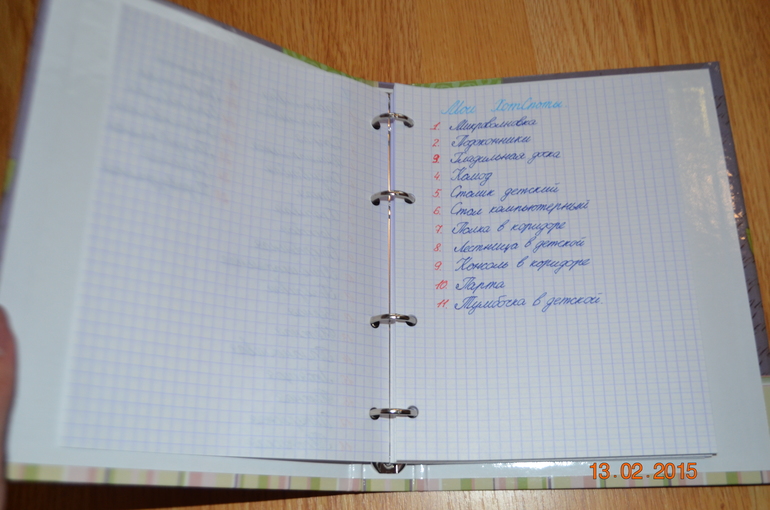 Мои ХотСпоты
1. Микроволновка
2. Подоконники
3. Гладильная доска
4. Комод
5. Столик детский
6. Стол компьютерный
7. Полка в коридоре
8. Лестница в детской
9. Консоль в коридоре
10. Парта
11. Тумбочка в детской
13.02.2015